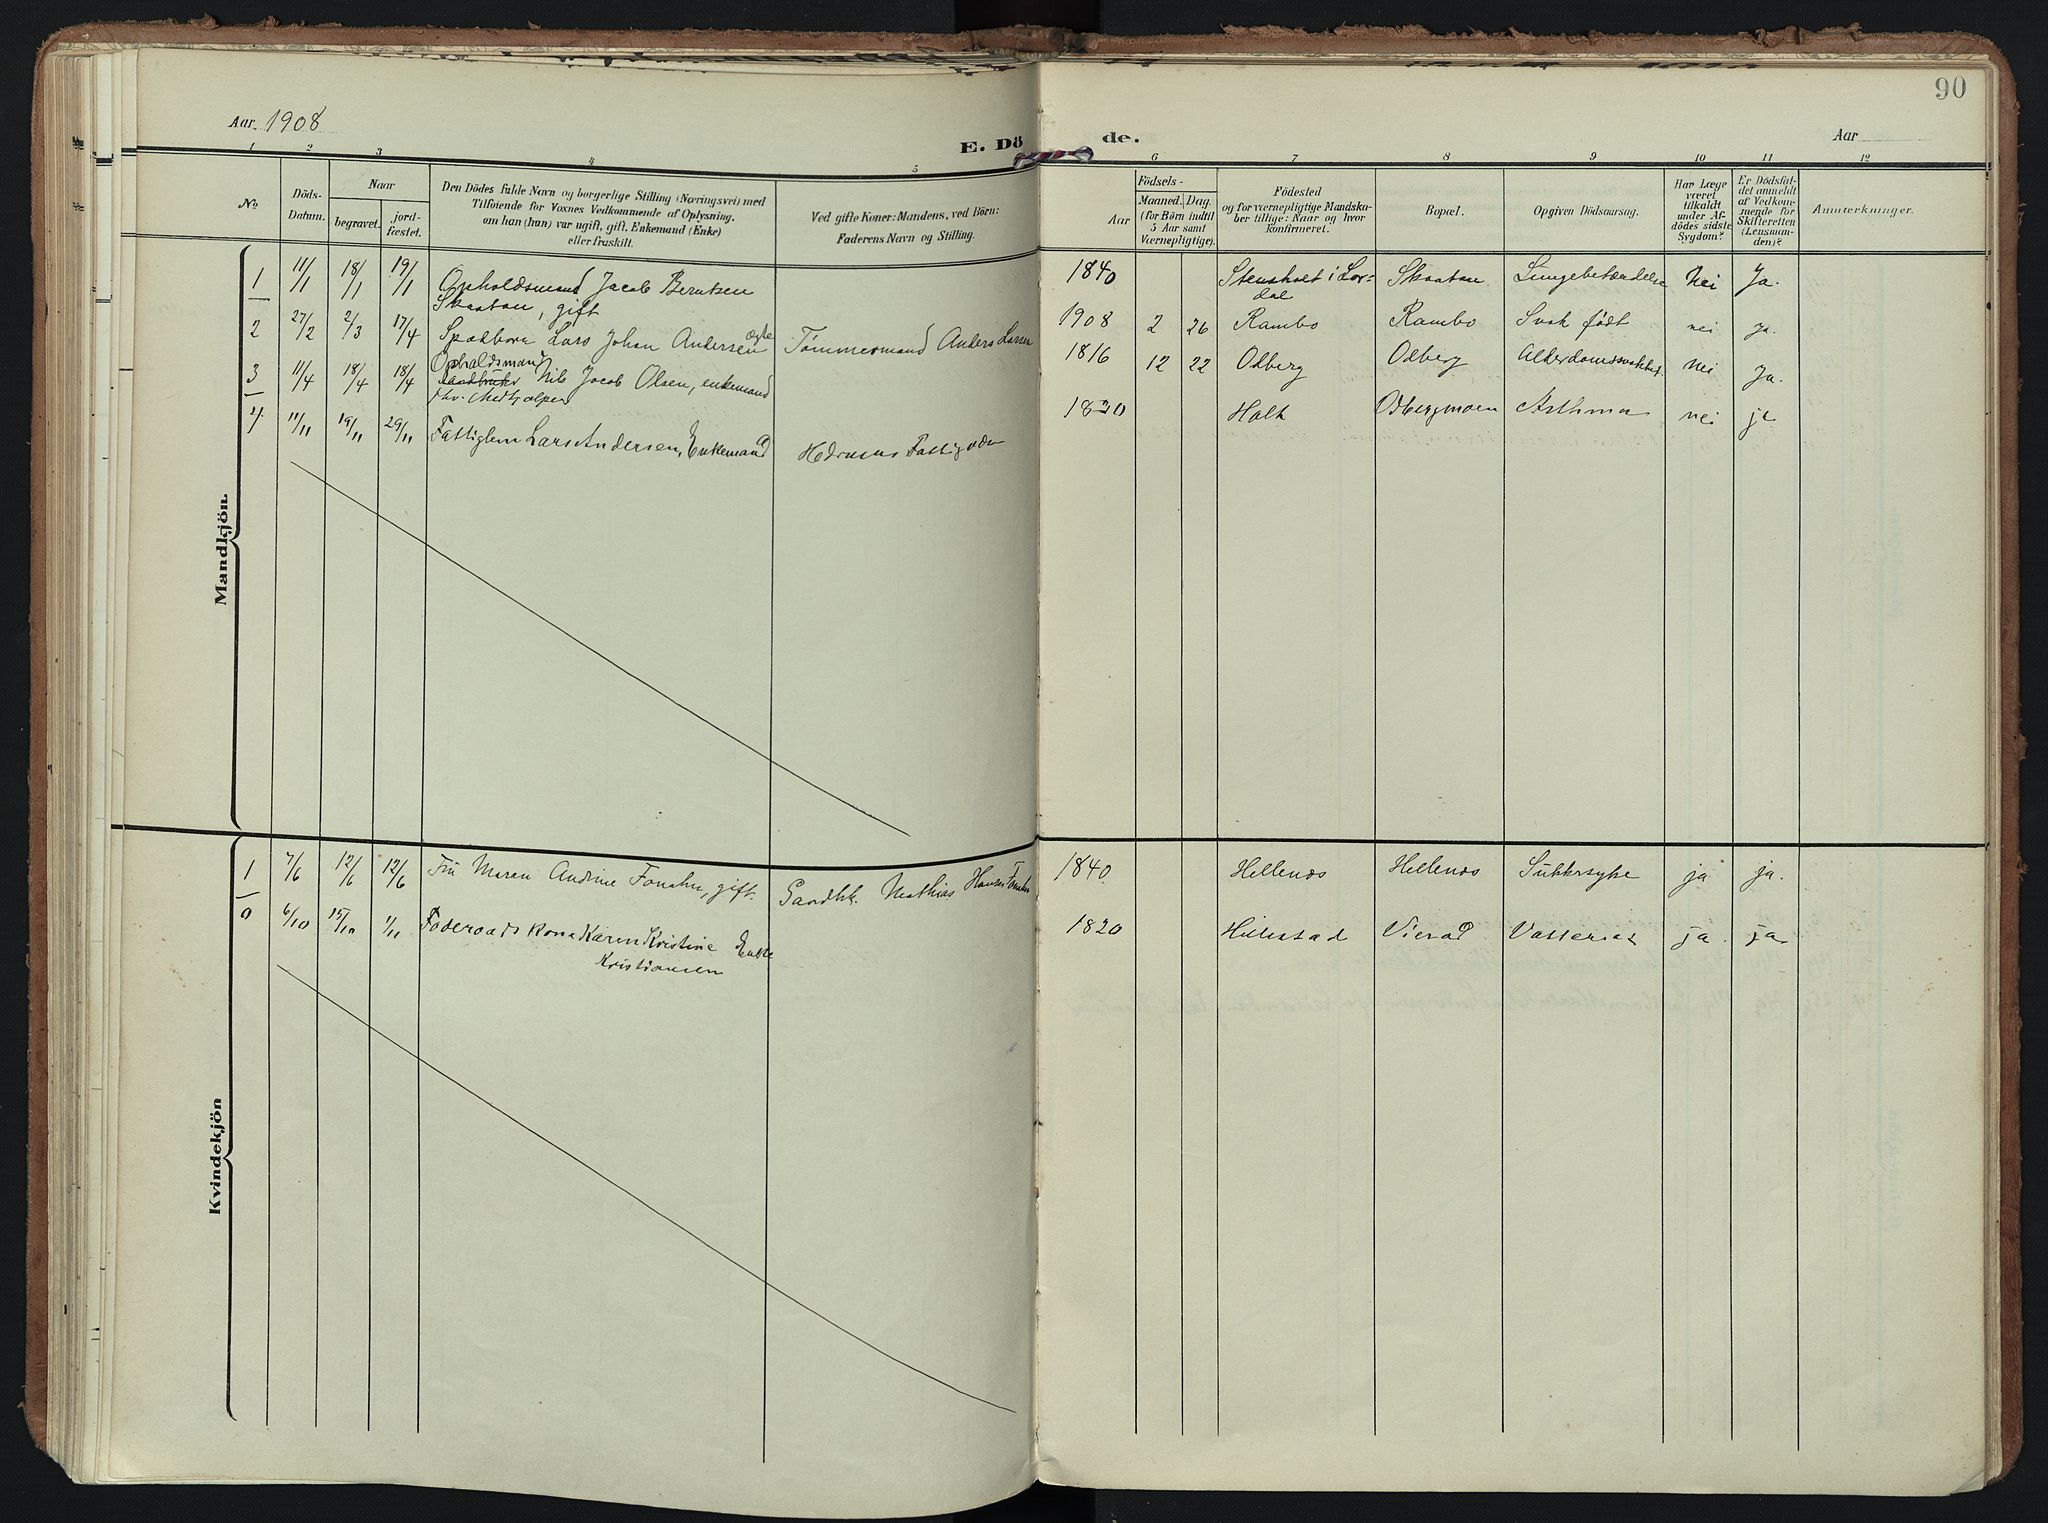 90
Aar 1908
E. Dö de.
Aar
1 2 3 4 5 6 7 8 9 10 11 12
No.
Döds-Datum.
Naar
begravet.
jord-fæstet.
Den Dödes fulde Navn og borgerlige Stilling (Næringsvei) med
Tilföiende for Voxnes Vedkommende af Oplysning,
om han (hun) var ugift, gift, Enkemand (Enke)
eller fraskilt.
Ved gifte Koner: Mandens, ved Börn:
Faderens Navn og Stilling.
Födsels-
Aar
Maaned. Dag.
(for Börn indtil
5 Aar samt
Værnepligtige).
Födested
og for værnepligtige Mandska-
ber tillige: Naar og hvor
konfirmeret.
Bopæl.
Opgiven Dödsaarsag.
Har Læge
været
tilkaldt
under Af-
dödes sidste
Sygdom?
Er Dödsfal-
det anmeldt
af Vedkom-
mende for
Skifteretten
(Lensman-
den)?
Anmærkninger.
Mandkjön.
1 11/1 18/1 19/1 Opholdsmand Jacob Berntsen 1840 Stensholt i Lar- Skaatan Lungebetændelse Nei Ja.
Skaatan, gift dal
2 27/2 2/3 17/4 Spædbarn Lars Johan Andersen ægte Tømmermand Anders Larsen 1908 2 26 Rambo Rambo Svak født nei ja.
3 11/4 18/4 18/4 Opholdsmand
Nils Jacob Olsen, enkemand 1816 12 22 Odberg Odberg Alderdomssvakhet nei Ja.
fhv. Medhjælper
4 11/11 19/11 29/11 Fattiglem Lars Andersen, Enkemand Hedrums Fattigvæsen 1830 Holt Odbergmoen Asthma nei ja
Kvindekjön
1 7/6 12/6 12/6 Fru Maren Andrine Fonahn, gift. Gaardbr. Mathias Hansen Fonahn 1840 Hellenæs Hellenæs Sukkersyke ja ja.
6/10 15/10 1/11 Føderaadskone Karen Kristine Enke 1820 Hillestad Vierød ja ja
Kristiansen